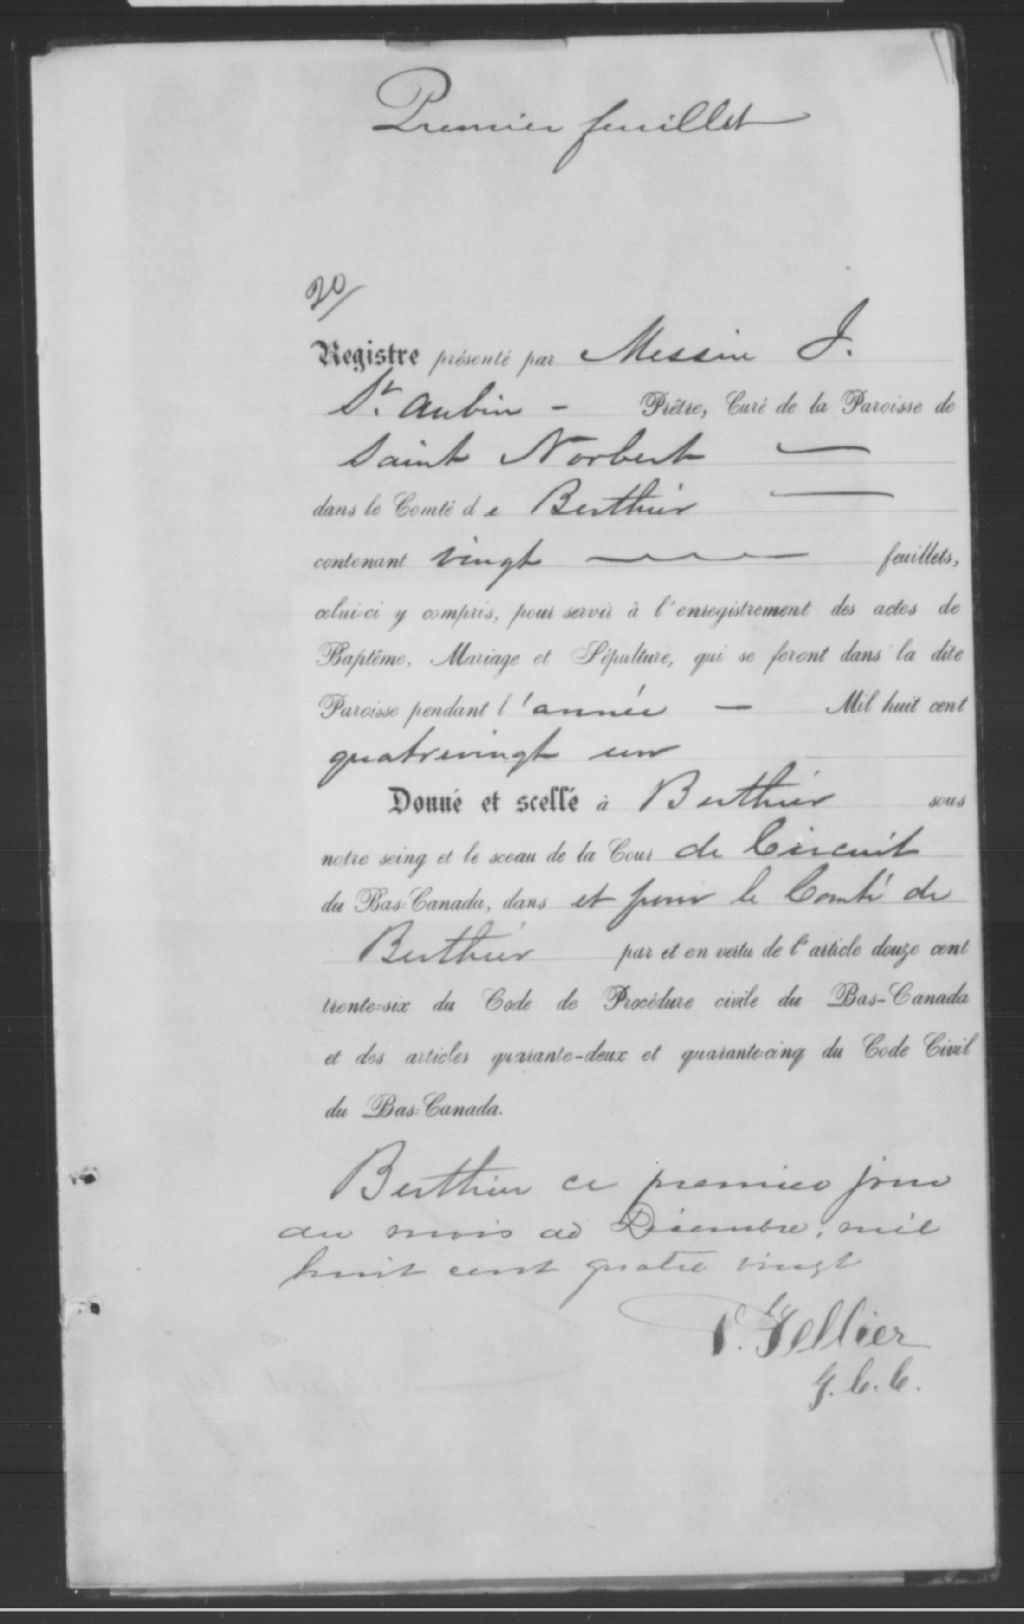 Premier feuillet
20/
Registre présenté par Messire J.
St. Aubin - Prêtre, Curé de la Paroisse de
Saint Norbert —
dans le Comté de Berthier —
contenant vingt — feuillets,
celui-ci y compris, pour servir à l'enregistrement des actes de
Baptême, Mariage et Sépulture, qui se feront dans la dite
Paroisse pendant l'année — Mil huit cent
quatrevingt un
Donné et scellé à Berthier sous
notre seing et le sceau de la Cour de Circuit
du Bas-Canada, dans et pour le Comté de
Berthier par et en vertu de l'article douze cent
trente-six du Code de Procédure civile du Bas-Canada
et des articles quarante-deux et quarante-cinq du Code Civil
du Bas-Canada.
Berthier ce premier jour
du mois de Décembre, mil
huit cent quatre vingt
Tellier
G.C.C.